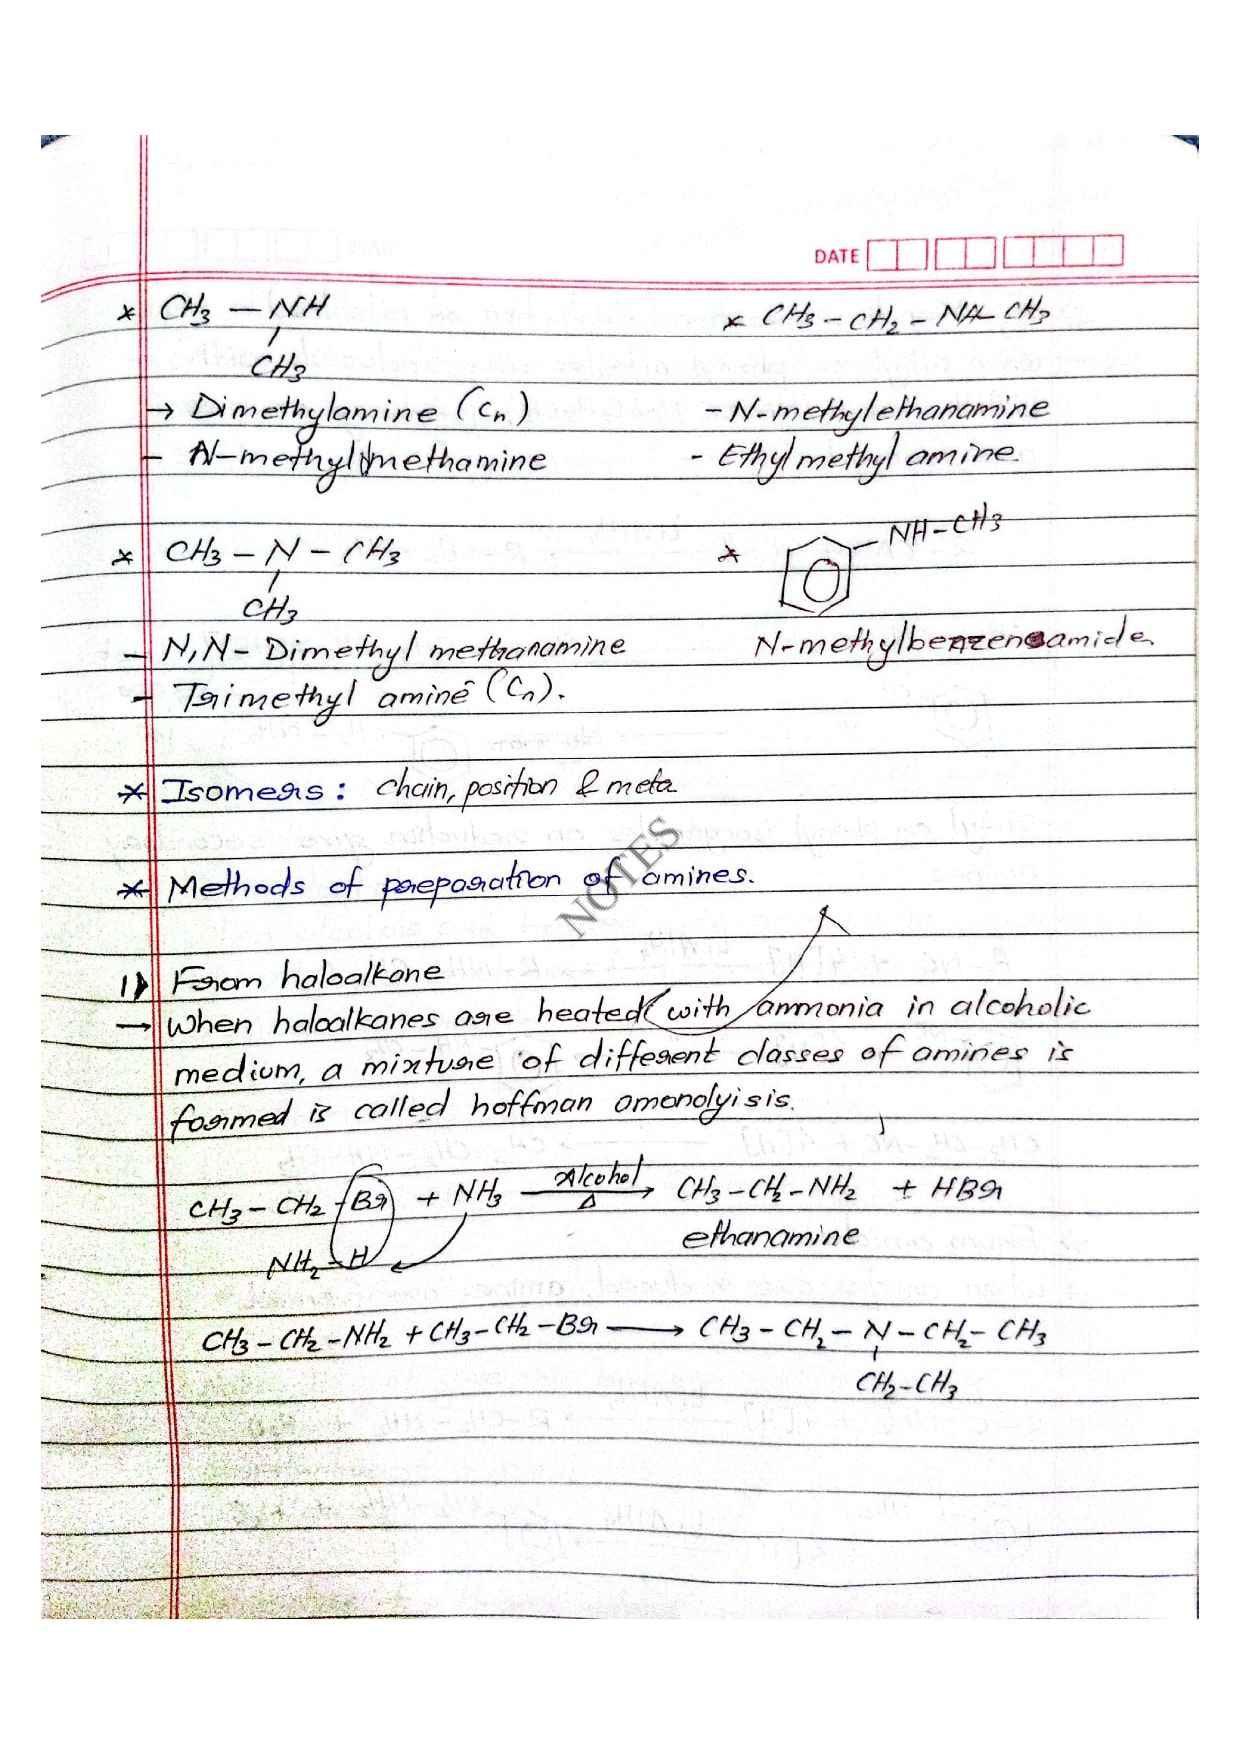 DATE
* CH3 — NH
CH3
→ Dimethylamine (Cn)
- N-methylmethamine
* CH3 - CH2 - NH- CH3
- N-methylethanamine
- Ethylmethyl amine.
* CH3 - N - CH3
CH3
- N,N- Dimethyl methanamine
- Trimethyl amine (Cn).
* NH-CH3
N-methylbenzenamide
* Isomers: chain, position & meta
* Methods of preparation of amines.
NOTES
1) From haloalkane
→ When haloalkanes are heated with ammonia in alcoholic
medium, a mixture of different classes of amines is
formed is called hoffman omonolyisis.
CH3 - CH2 - Br + NH3 Alcohol Δ → CH3 - CH2 - NH2 + HBr
NH2 - H ethanamine
CH3 - CH2 - NH2 + CH3 - CH2 - Br → CH3 - CH2 - N - CH2 - CH3
CH2-CH3